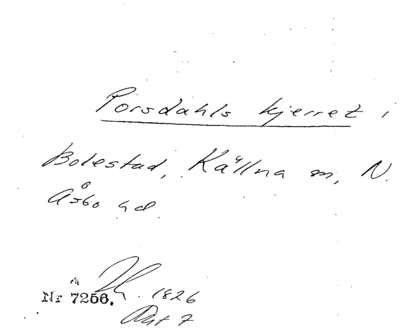 Porsdahls kjerret i
Bolestad, Källna m, N.
Åsbo hd.
Nr 7256. 1826
Akt 7